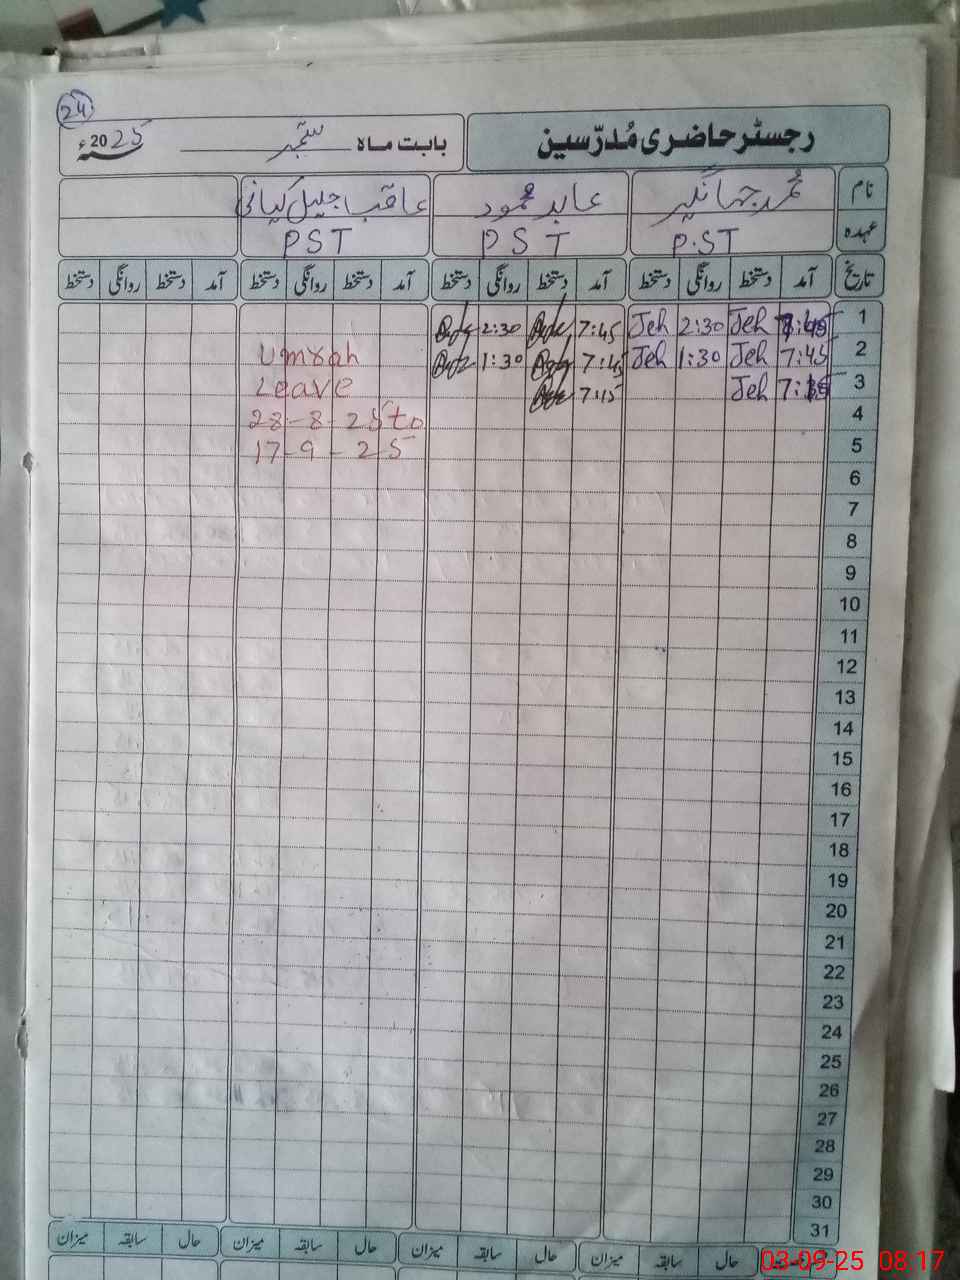 24
رجسٹر حاضری مُدرّسین
بابت ماہ ستمبر 2025ء
نام محمد جہانگیر عابد محمود عاقب جلیل کیانی
عہدہ P.ST PST PST
تاریخ آمد دستخط روانگی دستخط آمد دستخط روانگی دستخط آمد دستخط روانگی دستخط آمد دستخط روانگی دستخط
1 Jeh 2:30 Jeh 7:45 2:30
2 7:45 Jeh 1:30 Jeh 7:45 1:30 Umrah
3 Jeh 7:15 Leave
4 28-8-25 to
5 17-9-25
6
7
8
9
10
11
12
13
14
15
16
17
18
19
20
21
22
23
24
25
26
27
28
29
30
31
حال سابقہ میزان حال سابقہ میزان حال سابقہ میزان حال سابقہ میزان
03-09-25 08:17